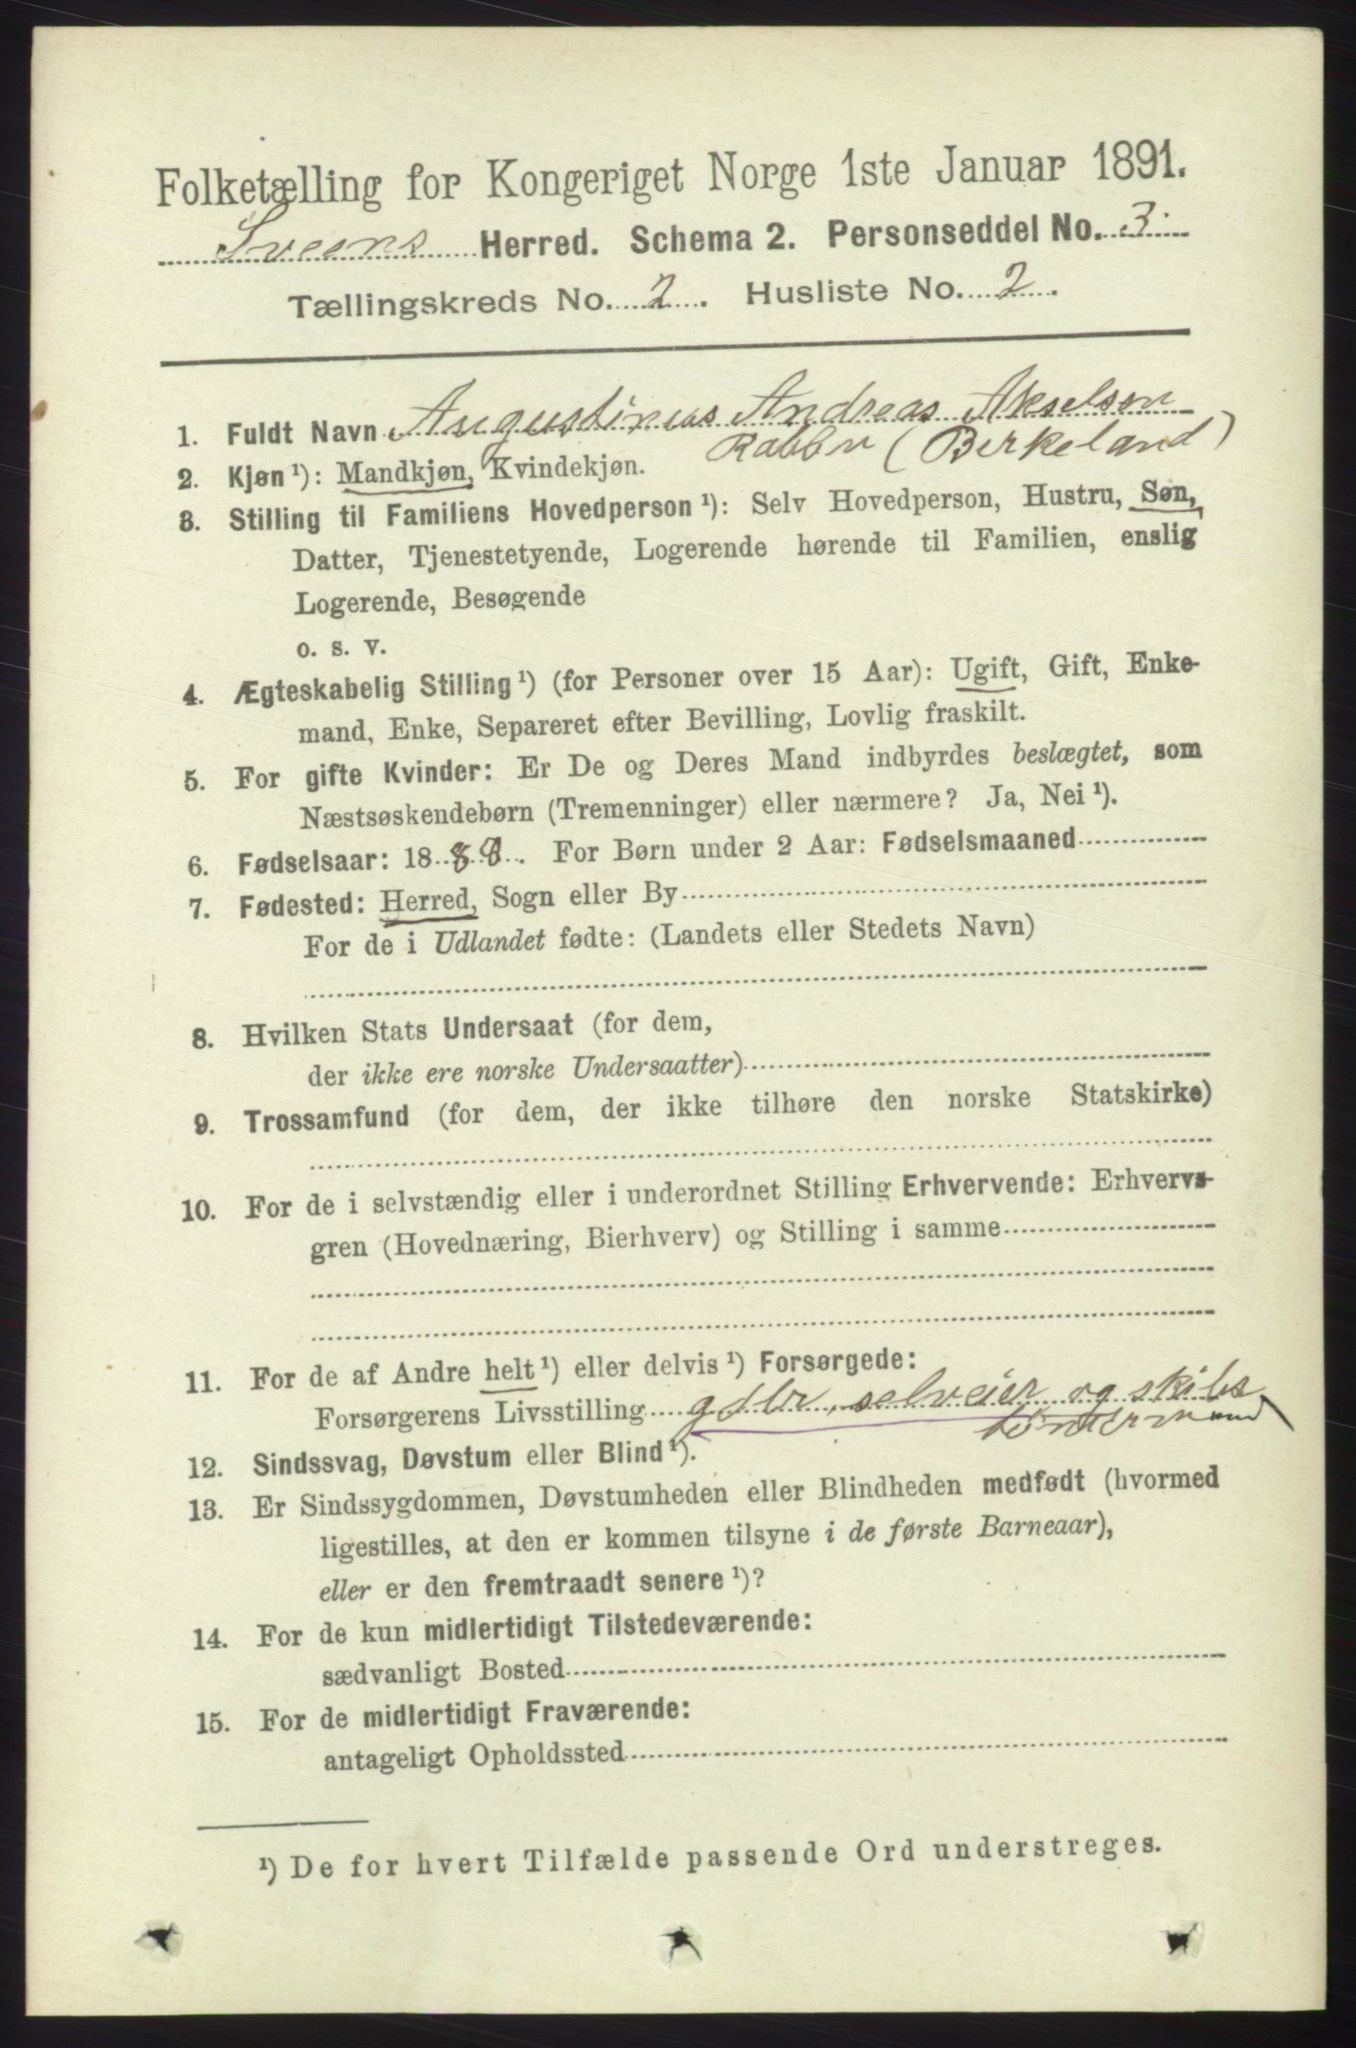 Folketælling for Kongeriget Norge 1ste Januar 1891.
Sveens Herred. Schema 2. Personseddel No. 3.
Tællingskreds No. 2. Husliste No. 2.
1. Fuldt Navn Augustinus Andreas Akselsen
Rabbn (Birkeland)
2. Kjøn ¹): Mandkjøn, Kvindekjøn.
3. Stilling til Familiens Hovedperson ¹): Selv Hovedperson, Hustru, Søn,
Datter, Tjenestetyende, Logerende hørende til Familien, enslig
Logerende, Besøgende
o. s. v.
4. Ægteskabelig Stilling ¹) (for Personer over 15 Aar): Ugift, Gift, Enke-
mand, Enke, Separeret efter Bevilling, Lovlig fraskilt.
5. For gifte Kvinder: Er De og Deres Mand indbyrdes beslægtet, som
Næstsøskendebørn (Tremenninger) eller nærmere? Ja, Nei ¹).
6. Fødselsaar: 1888. For Børn under 2 Aar: Fødselsmaaned
7. Fødested: Herred, Sogn eller By
For de i Udlandet fødte: (Landets eller Stedets Navn)
8. Hvilken Stats Undersaat (for dem,
der ikke ere norske Undersaatter)
9. Trossamfund (for dem, der ikke tilhøre den norske Statskirke)
10. For de i selvstændig eller i underordnet Stilling Erhvervende: Erhvervs-
gren (Hovednæring, Bierhverv) og Stilling i samme
11. For de af Andre helt ¹) eller delvis ¹) Forsørgede:
Forsørgerens Livsstilling gdbr. selveier og skibs
tømdermand
12. Sindssvag, Døvstum eller Blind ¹).
13. Er Sindssygdommen, Døvstumheden eller Blindheden medfødt (hvormed
ligestilles, at den er kommen tilsyne i de første Barneaar),
eller er den fremtraadt senere ¹)?
14. For de kun midlertidigt Tilstedeværende:
sædvanligt Bosted
15. For de midlertidigt Fraværende:
antageligt Opholdssted
¹) De for hvert Tilfælde passende Ord understreges.